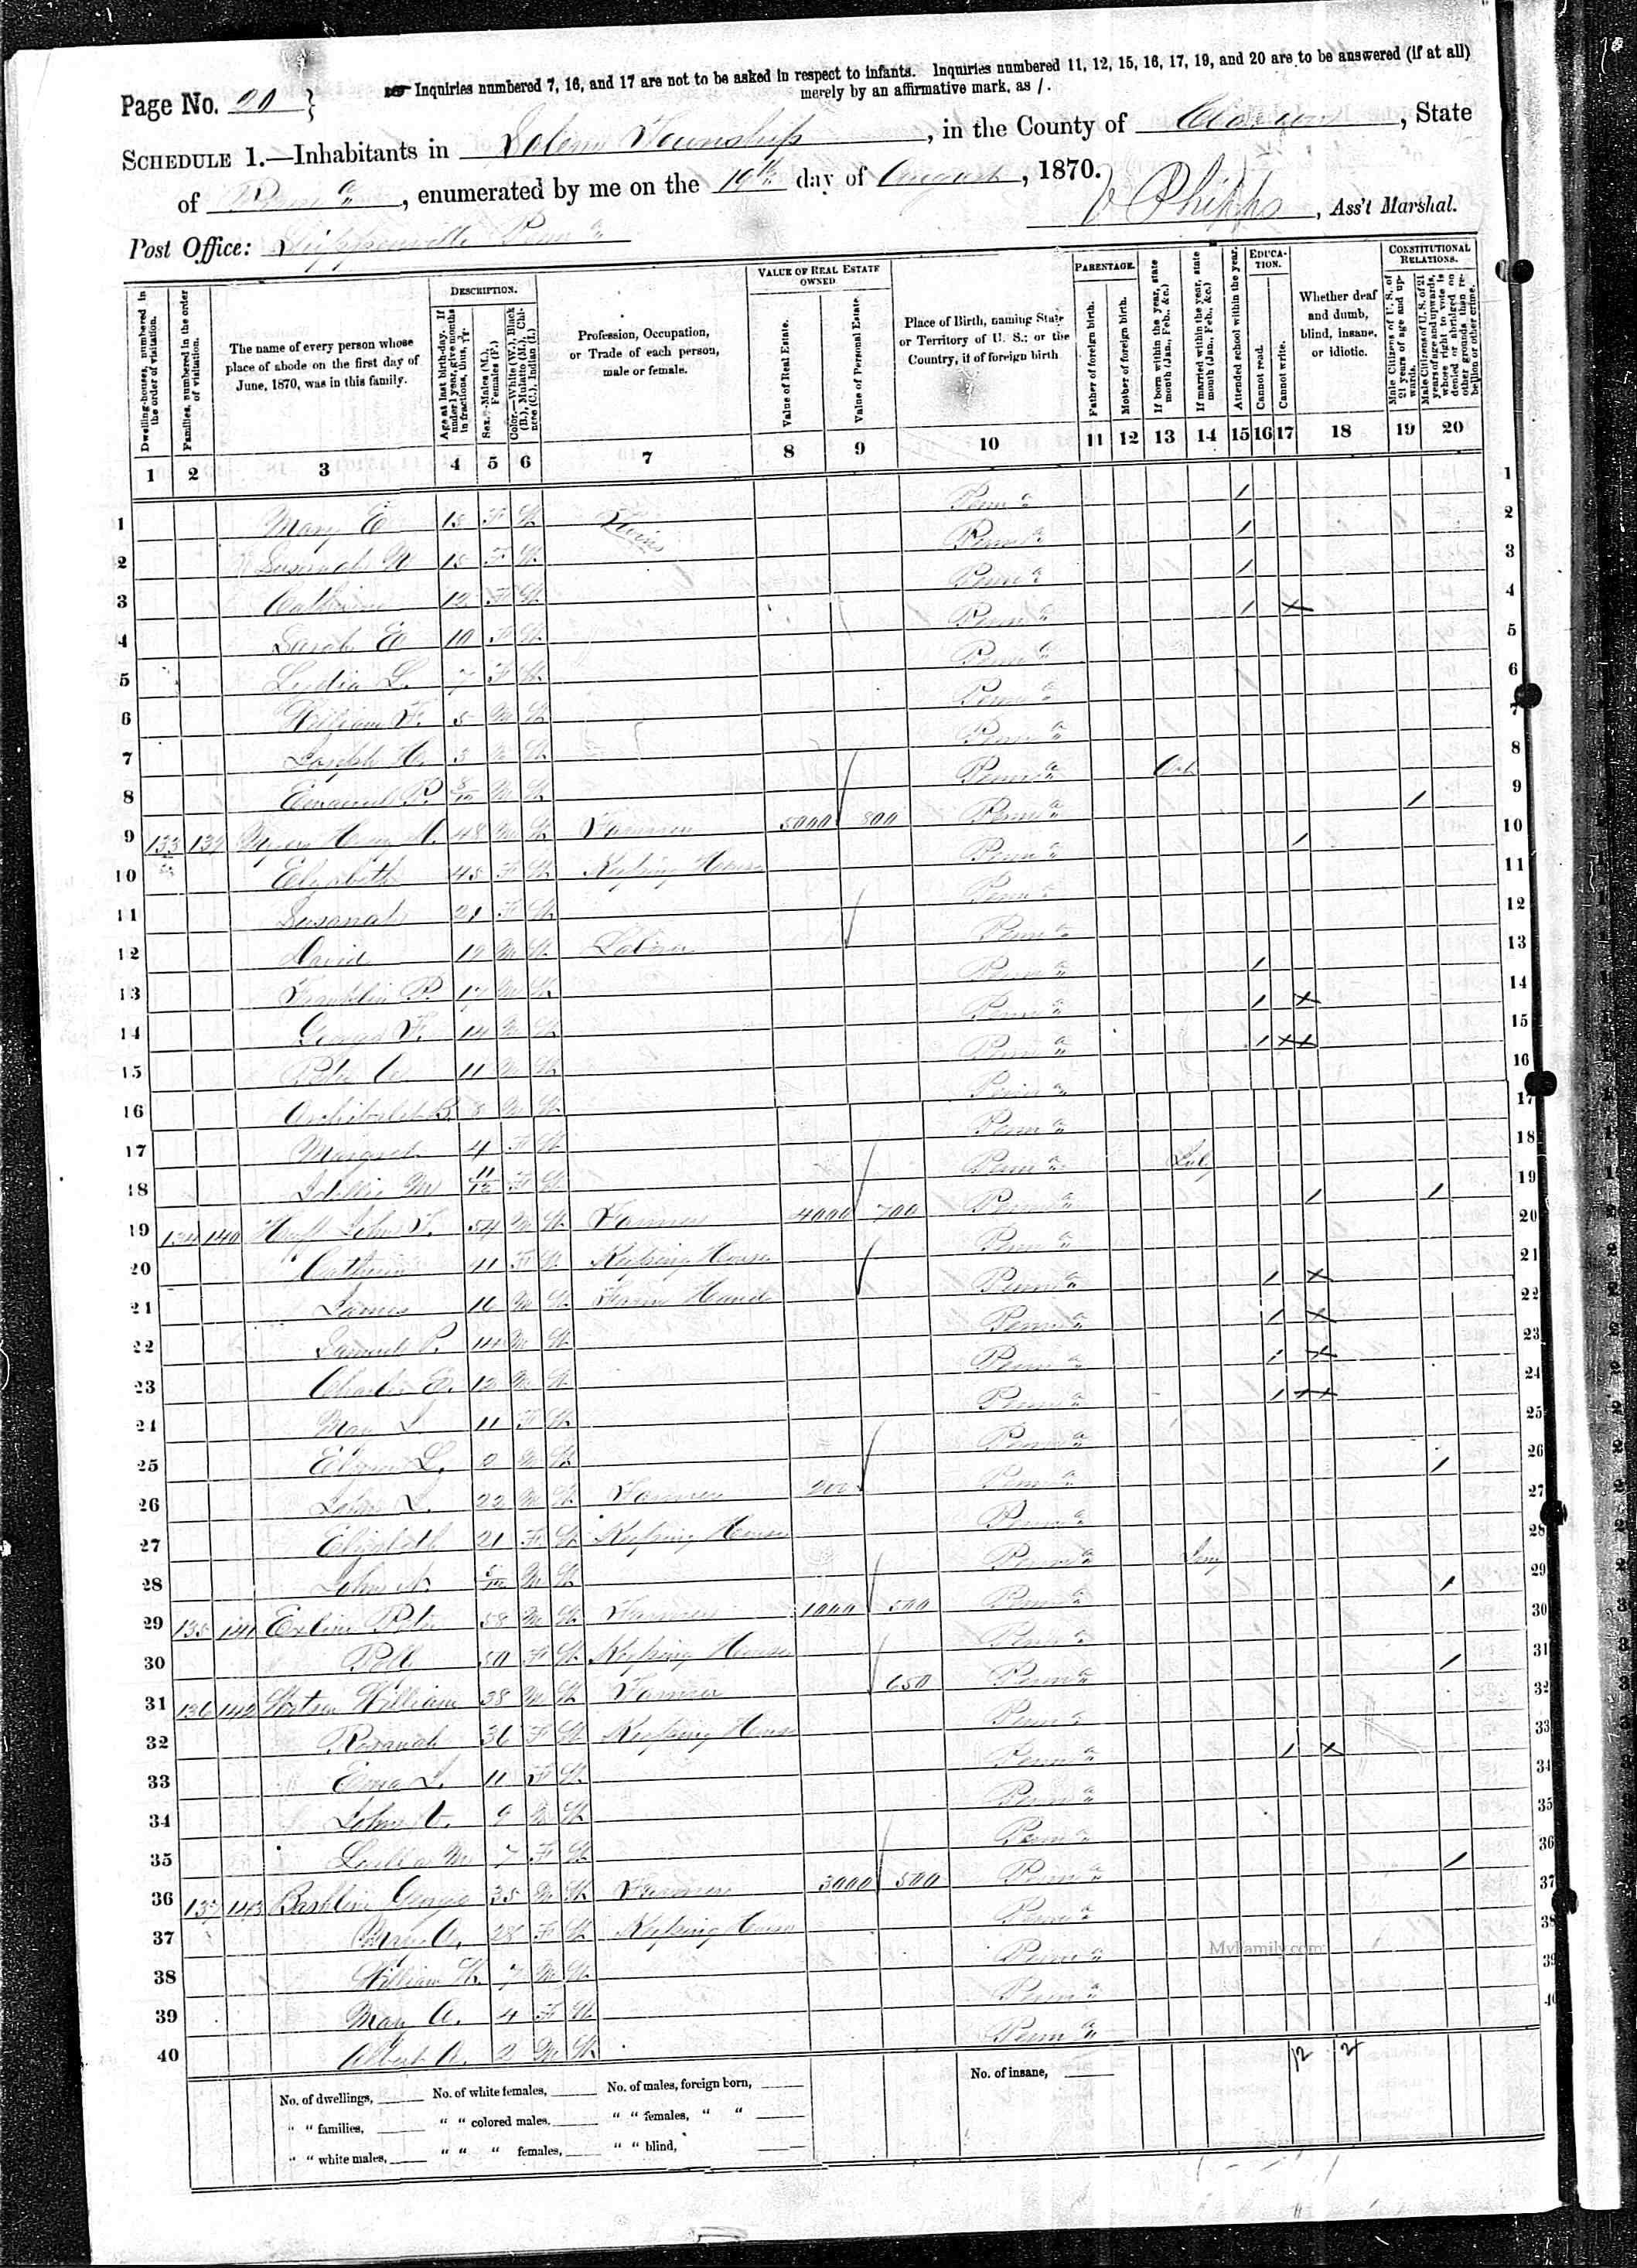 Inquiries numbered 7, 16, and 17 are not to be asked in respect to infants. Inquiries numbered 11, 12, 15, 16, 17, 19, and 20 are to be answered (if at all)
merely by an affirmative mark, as /.
Page No. 20 }
SCHEDULE 1.—Inhabitants in Salem Township, in the County of Clarion, State
of Penna, enumerated by me on the 19th day of August, 1870.
Post Office: Lippenville Penna
Phipps, Ass't Marshal.
Dwelling-houses, numbered in the order of visitation.
Families, numbered in the order of visitation.
The name of every person whose place of abode on the first day of June, 1870, was in this family.
DESCRIPTION.
Age at last birth-day. If under 1 year, give months in fractions, thus, 3/12
Sex.—Males (M.), Females (F.)
Color.—White (W.), Black (B.), Mulatto (M.), Chinese (C.), Indian (I.)
Profession, Occupation, or Trade of each person, male or female.
VALUE OF REAL ESTATE OWNED
Value of Real Estate.
Value of Personal Estate.
Place of Birth, naming State or Territory of U. S.; or the Country, if of foreign birth
PARENTAGE.
Father of foreign birth.
Mother of foreign birth.
If born within the year, state month (Jan., Feb., &c.)
If married within the year, state month (Jan., Feb., &c.)
Attended school within the year.
EDUCATION.
Cannot read.
Cannot write.
Whether deaf and dumb, blind, insane, or idiotic.
CONSTITUTIONAL RELATIONS.
Male Citizens of U. S. of 21 years of age and upwards.
Male Citizens of U. S. of 21 years of age and upwards, whose right to vote is denied or abridged on other grounds than rebellion or other crime.
1 2 3 4 5 6 7 8 9 10 11 12 13 14 15 16 17 18 19 20
1 Mary E 15 F W Twins Penna / 1
2 Susanah 15 F W Penna / 2
3 Catharine 12 F W Penna / 3
4 Sarah E 10 F W Penna / x 4
5 Lydia L. 7 F W Penna 5
6 William F. 5 M W Penna 6
7 Joseph H. 3 M W Penna 7
8 Emanuel P. M W Penna Oct 8
9 133 139 Myers M. 48 M W Farmer 5000 800 Penna / 9
10 Elizabeth 45 F W Keeping House Penna / 10
11 Susanah 21 F W Penna 11
12 David 19 M W Laborer Penna 12
13 Franklin P. 17 M W Penna / 13
14 George F. 14 M W Penna / x 14
15 Peter 11 M W Penna / x x 15
16 Archibald B. 8 M W Penna 16
17 Margaret 4 F W Penna 17
18 M 11/12 F W Penna July 18
19 134 140 John F. 54 M W Farmer 4000 700 Penna / / 19
20 Catharine 41 F W Keeping House Penna 20
21 James 16 M W Farm Hand Penna / x 21
22 Samuel P. 14 M W Penna / x 22
23 Charles E. 12 M W Penna / x 23
24 Mary 11 F W Penna / x x 24
25 L. M W Penna 25
26 John L. 22 M W Farmer 200 Penna / 26
27 Elizabeth 21 F W Keeping House Penna 27
28 John M W Penna Jany 28
29 135 141 Peter 58 M W Farmer 1000 500 Penna / 29
30 Polly 50 F W Keeping House Penna 30
31 136 142 Watson William 38 M W Farmer 650 Penna / 31
32 Rosanah 36 F W Keeping House Penna 32
33 11 F W Penna / x 33
34 John 9 M W Penna 34
35 M 7 F W Penna 35
36 137 143 Bashline George 35 M W Farmer 3000 500 Penna / 36
37 Mary A. 28 F W Keeping House Penna 37
38 William 7 M W Penna 38
39 Mary A. 4 F W Penna 39
40 Albert A. 2 M W Penna 40
12 12
MyFamily.com
No. of dwellings, No. of white females, No. of males, foreign born, No. of insane,
" " families, " " colored males, " " females, " "
" " white males, " " " females, " " blind,